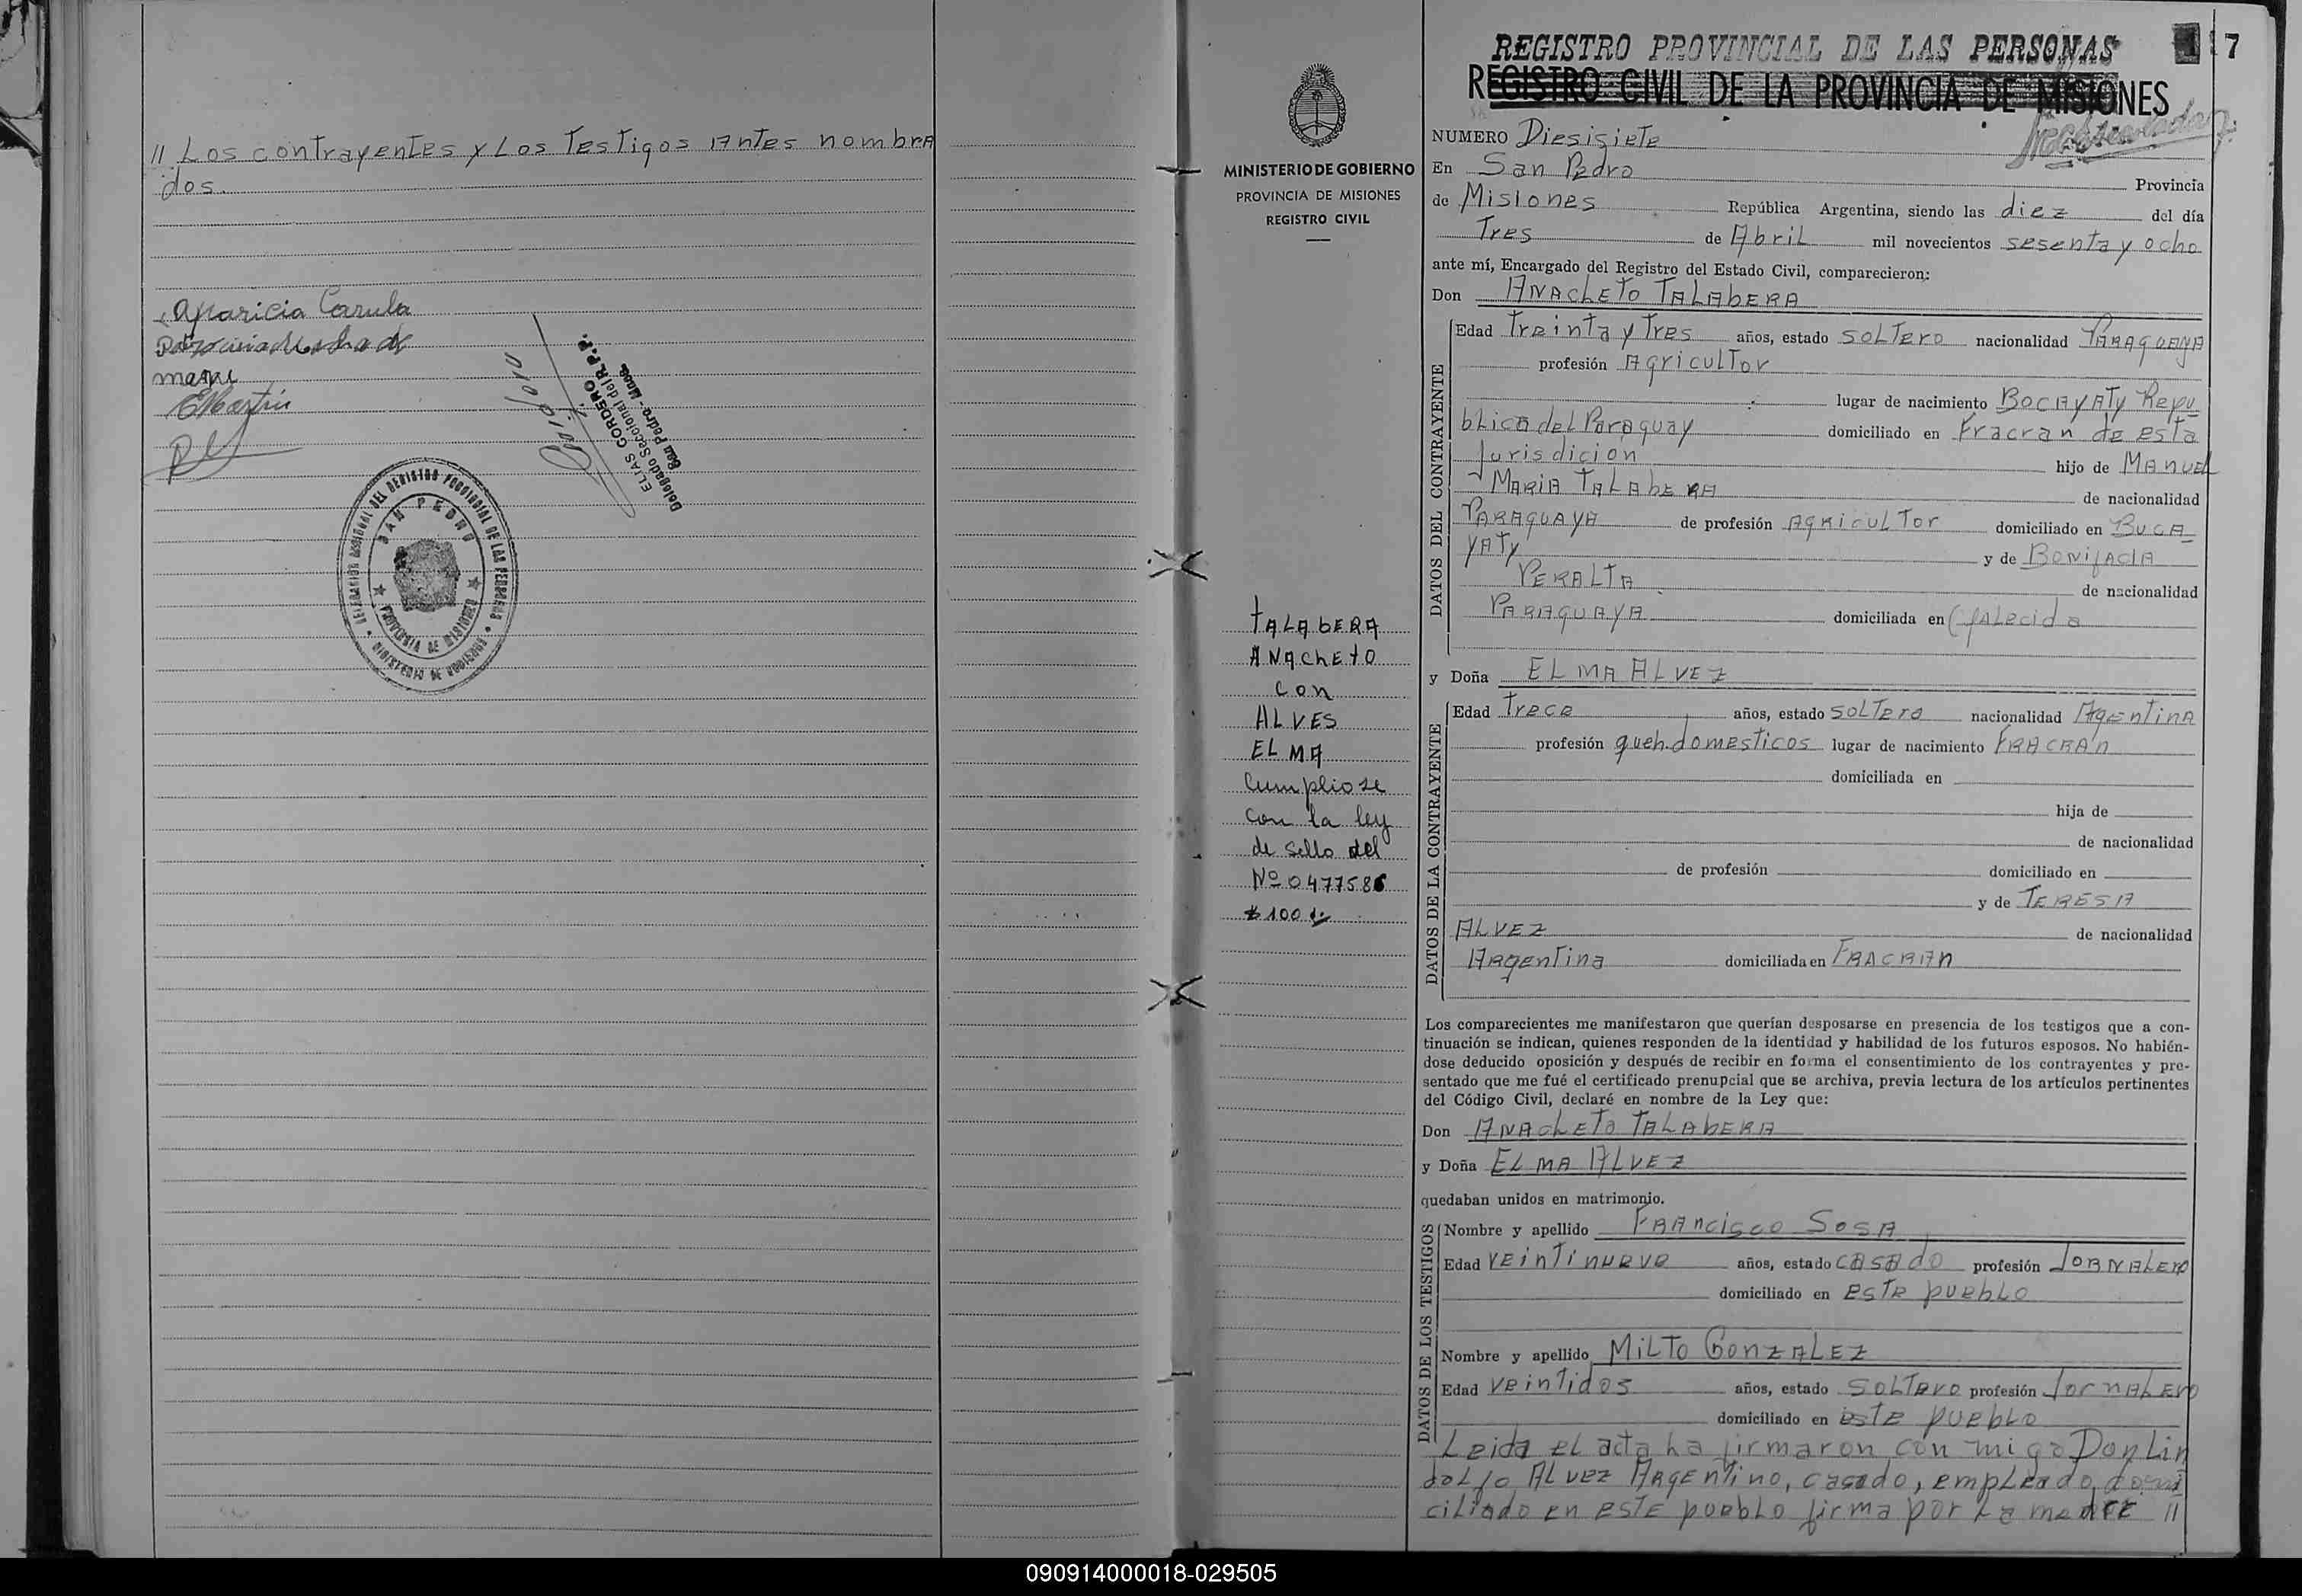 // Los contrayentes y Los Testigos Antes nombra
dos.
Aparicia
Martin
ELIAS CORDERO
Delegado Seccional del R.P.P.
San Pedro - Mnes.
DELEGACION SECCIONAL DEL REGISTRO PROVINCIAL DE LAS PERSONAS
SAN PEDRO
PROVINCIA DE MISIONES
MINISTERIO DE GOBIERNO
MINISTERIO DE GOBIERNO
PROVINCIA DE MISIONES
REGISTRO CIVIL
TALAbERA
ANAchEtO
con
ALVES
ELMA
Cumpliose
con la ley
de sello del
Nº 0477586
$ 100
REGISTRO PROVINCIAL DE LAS PERSONAS
7
REGISTRO CIVIL DE LA PROVINCIA DE MISIONES
NUMERO Diesisiete
En San Pedro Provincia
de Misiones República Argentina, siendo las diez del día
Tres de Abril mil novecientos sesenta y ocho
ante mí, Encargado del Registro del Estado Civil, comparecieron:
Don ANAchETO TALAbERA
DATOS DEL CONTRAYENTE
Edad Treinta y Tres años, estado SOLTERO nacionalidad PARAGUAYA
profesión Agricultor
lugar de nacimiento BOCAYATY Repu
bLica del Paraguay domiciliado en Fracran de esta
Jurisdicion hijo de MANUEL
MARIA TALAbERA de nacionalidad
PARAGUAYA de profesión AGRICULTOR domiciliado en BUCA-
YATY y de BONIfACIA
PERALTA de nacionalidad
PARAGUAYA domiciliada en (fALecida
y Doña ELMA ALVEZ
DATOS DE LA CONTRAYENTE
Edad Trece años, estado SOLTERA nacionalidad Agentina
profesión queh.domesticos lugar de nacimiento FRACRAn
domiciliada en
hija de
de nacionalidad
de profesión domiciliado en
y de TERESA
ALVEZ de nacionalidad
ARgenTina domiciliada en FRACRAn
Los comparecientes me manifestaron que querían desposarse en presencia de los testigos que a con-
tinuación se indican, quienes responden de la identidad y habilidad de los futuros esposos. No habién-
dose deducido oposición y después de recibir en forma el consentimiento de los contrayentes y pre-
sentado que me fué el certificado prenupcial que se archiva, previa lectura de los artículos pertinentes
del Código Civil, declaré en nombre de la Ley que:
Don ANAchETO TALAbERA
y Doña ELMA ALVEZ
quedaban unidos en matrimonio.
DATOS DE LOS TESTIGOS
Nombre y apellido FRAncisco SOSA
Edad veintinueve años, estado casado profesión JORNALERO
domiciliado en este puebLo
Nombre y apellido MiLTO GonzALEZ
Edad veintidos años, estado SOLTERO profesión JornALERO
domiciliado en este puebLo
Leida el acta ha firmaron con migo Don Lin
dolfo ALvez ARgentino, casado, empleado, domi
ciliado en este pueblo firma por La madre //
090914000018-029505